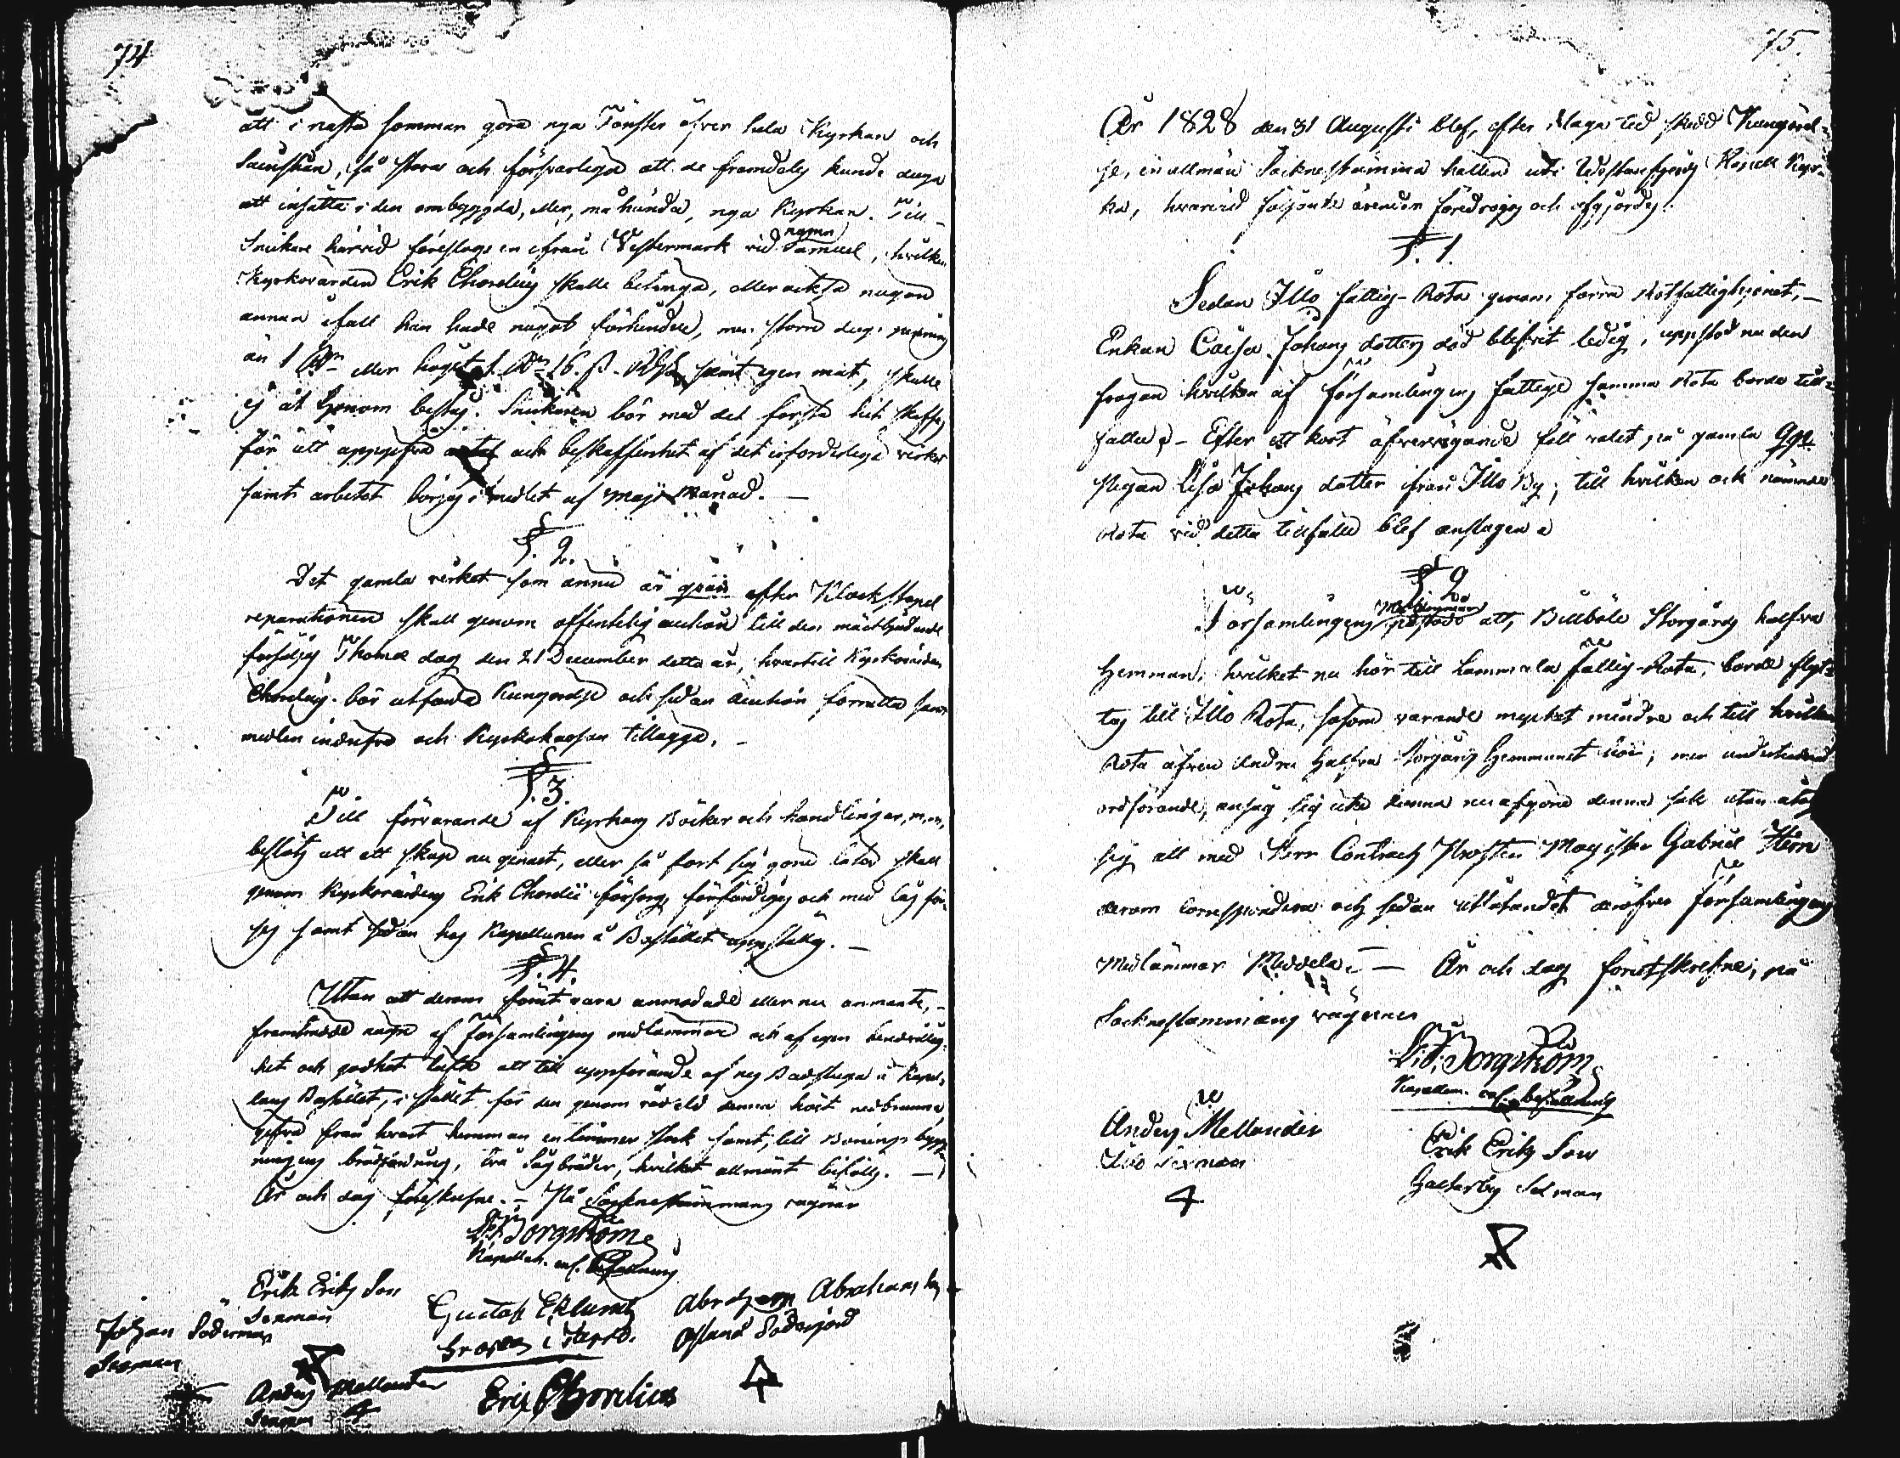 74
att i nästa sommar göra nya Fönster öfver hela Kyrkan och
så stora och försvarliga att de framdeles kunde duga
att insätta i den ombyggda, eller, må hända, nya Kyrkan. Till
Snickare härvid föreslogs en ifrån Westermark vid namn Samuel, hvilken
Kyrkovärden Erik Chordeius skulle betinga, eller ock så någon
annan ifall han hade något förhinder, men större dags
än 1 eller högst 1 16 samt egen mat, skulle
ej åt honom bestås. Snickaren bör med det första hit skaffas
för att uppgifva antal och beskaffenhet af det erforderliga virket
samt arbetet börjas i medlet af Maji Månad. —
§. 2.
Det gamla virket som ännu är qvar efter Klockstapel
reparationen skall genom offentelig auction till den mästbjudande
försäljas Thomæ dag den 21 December detta år, hvartill Kyrkovärden
Chordeius bör utfärda Kungörelse och sedan auction förrätta samt
medlen indrifva och Kyrkokassan tillägga. —
§. 3.
Till förvarande af Kyrkans Böcker och handlingar, m.m,
beslöts att ett skåp nu genast, eller så fort sig göra låter skall
genom Kyrkovärdens Erik Chordeii försorg förfärdigas och med lås för-
ses samt sedan hos Kapellanen å Bostället uppställas. —
§. 4.
Utan att derom förut vara anmodade eller nu anmante, —
framträdde några af Församlingens medlemmar och af egen benägen-
het och godhet läfte att till uppförande af ny Badstuga å Kapel-
lans Bostället, i stället för den genom våd eld denna höst nedbrunna
gifva från hvart hemman en timmer stock samt, till Bonings bygg-
ningens brädfodring, två Sågbräder, hvilket allmänt bifölls. —
År och dag föreskrefne. — På Socknestämmans vägnar
Borgström
Kapellan
Erik Ericks Son
Sexman
Gustaf Eklund
Abraham Abrahams
Söderfjärd
Johan Söderman
Sexman
Anders Mellander
Sexman
Eric Chordeius
75.
År 1828 den 31 Augusti blef, efter i laga tid skedd Kungörel-
se, en allmän Sockne stämma hållen uti Kapell Kyr-
ka, hvarvid följande ärenden föredrogos och afgjordes:
§. 1.
Sedan Illo fattig-Rota genom förra Rotfattighjonet, —
Enkan Caisa Johans dotters död blifvit ledig, uppstod nu den
frågan hvilken af Församlingens fattige samma Rota borde till-
falla? — Efter ett kort öfvervägande föll valet på gamla
Pigan Lisa Johans dotter ifrån Illo By; till hvilken ock nämnde
Rota vid detta tillfälle blef anslagen.
§ 2
Församlingens Medlemmar påstodo att, Billböle Storgårds halfva
Hemman, hvilket nu hör till Hammala fattig-Rota, borde flyt-
tas till Illo Rota, såsom varande mycket mindre och till hvilken
Rota äfven andra halfva Storgårds Hemmanet hör; men undertecknad
ordförande, ansåg sig icke kunna nu afgöra denna sak utan åtog
sig att med Herr Contracts Prosten Magister Gabriel Hirn
derom correspondera och sedan utlåtandet deröfver Församlingens
Medlämmar Meddela. — År och dag förutskrefne, på
Socknestämmans vägnar
Borgström
Kapellan
Anders Mellander
Illo Sexman
Erik Ericks Son
Sexman